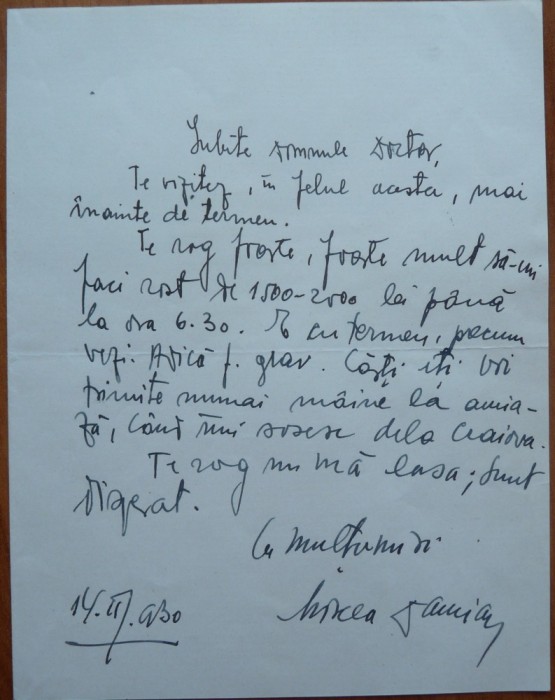 Iubite domnule Doctor,
Te vizitez, în felul acesta, mai
înainte de termen.
Te rog foarte, foarte mult să-mi
faci rost de 1500-2000 lei până
la ora 6.30. E cu termen, precum
vezi. Adică f. grav. Cărți îți voi
trimite numai mâine la amia-
ză, când îmi sosesc dela Craiova.
Te rog nu mă lăsa; sunt
disperat.
Cu mulțumiri
Mircea Damian
14.II.930